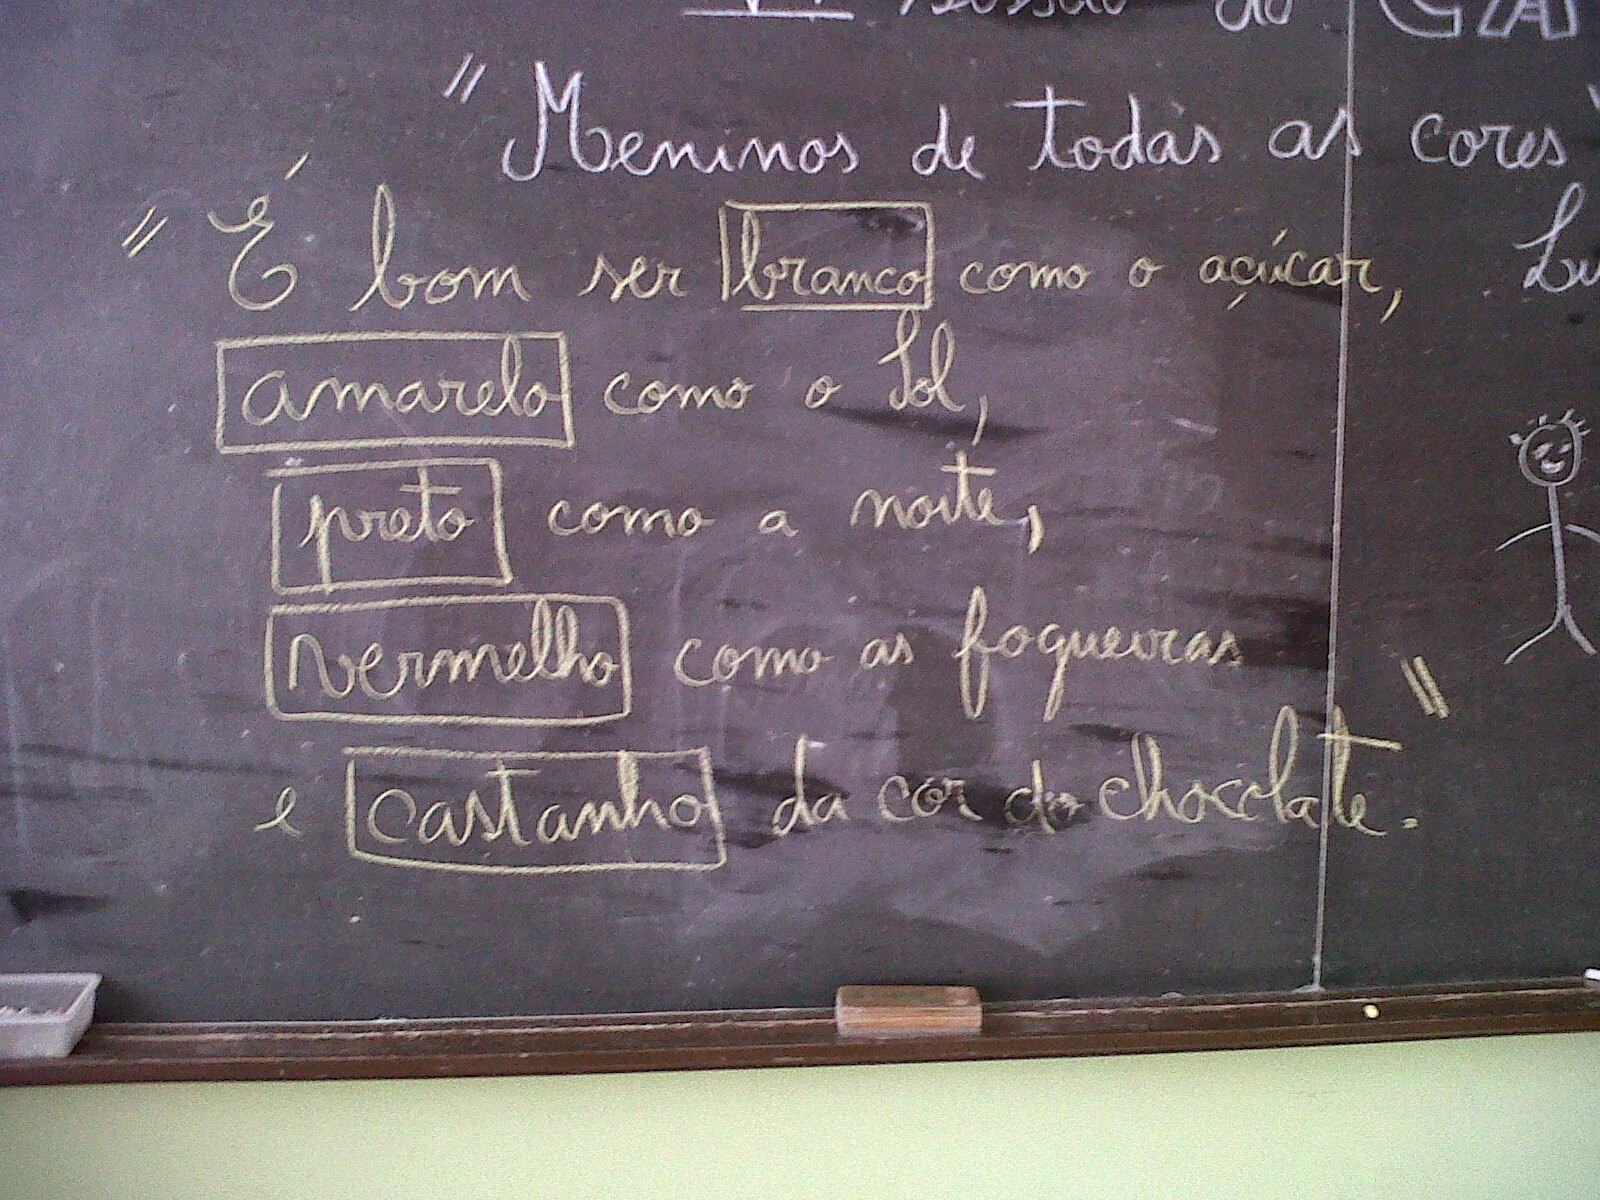 do
"Meninos de todas as cores"
Lu
"É bom ser branco como o açúcar,
amarelo como o Sol,
preto como a noite,
vermelho como as fogueiras
e castanho da cor do chocolate."